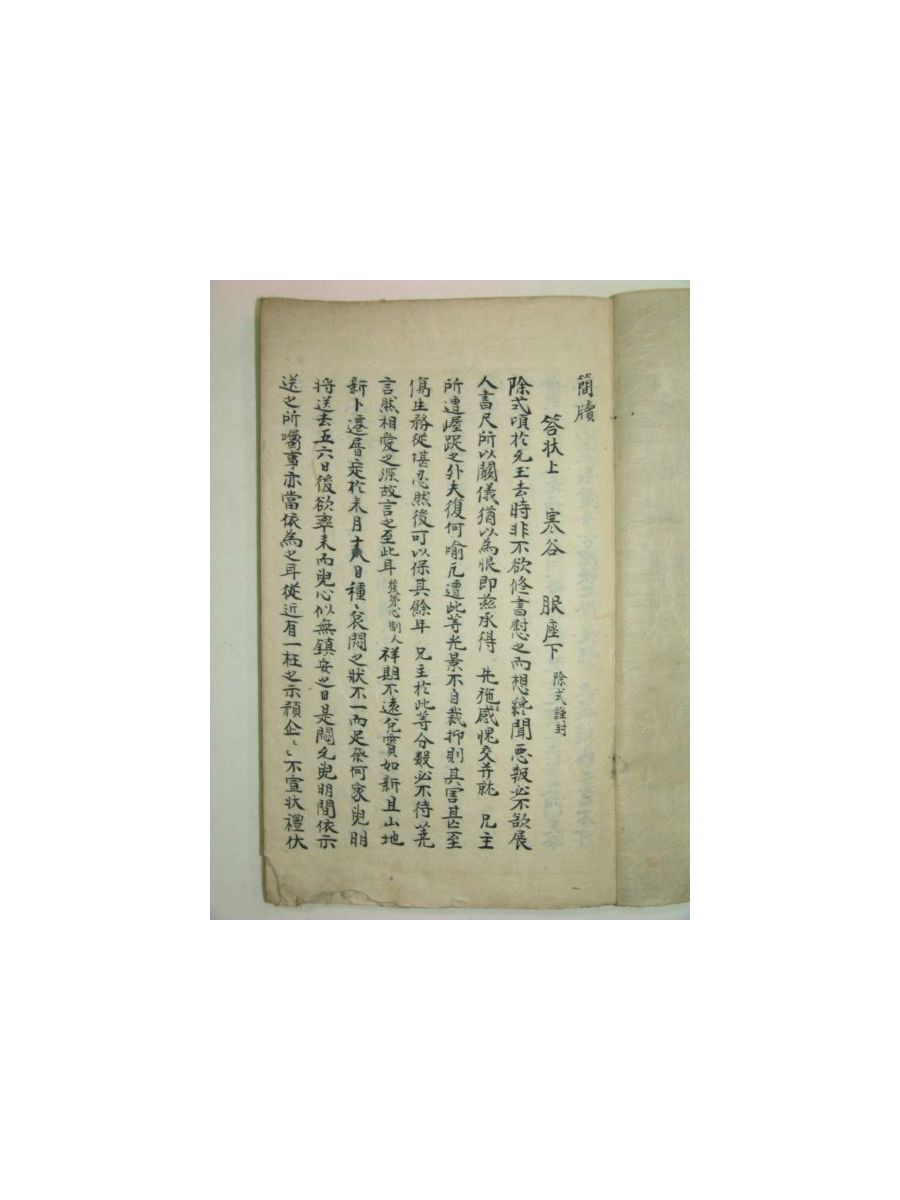 簡牘
答状上 寒谷 服座下 除式謹封
除式頃於允玉去時非不欲修書慰之而想終聞惡報必不欲展
人書尺所以闕儀猶以為恨即玆承得 先施感愧交幷就 兄主
所遭崛跎之外夫復何喻凡遭此等光景不自裁抑則其害甚至
傷生務從堪忍然後可以保其餘年 兄主於此等分數必不待蒭
言然相愛之深故言之至此耳 人祥期不遠兌實如新且山地
新卜遷厝定於来月十八日種〻哀悶之狀不一而足奈何家兒明
將送去五六日後欲率来而兒心似無鎮安之日是悶允兒明間依示
送之所囑事亦當依為之耳從近有一枉之示顒企〻〻不宣状禮伏